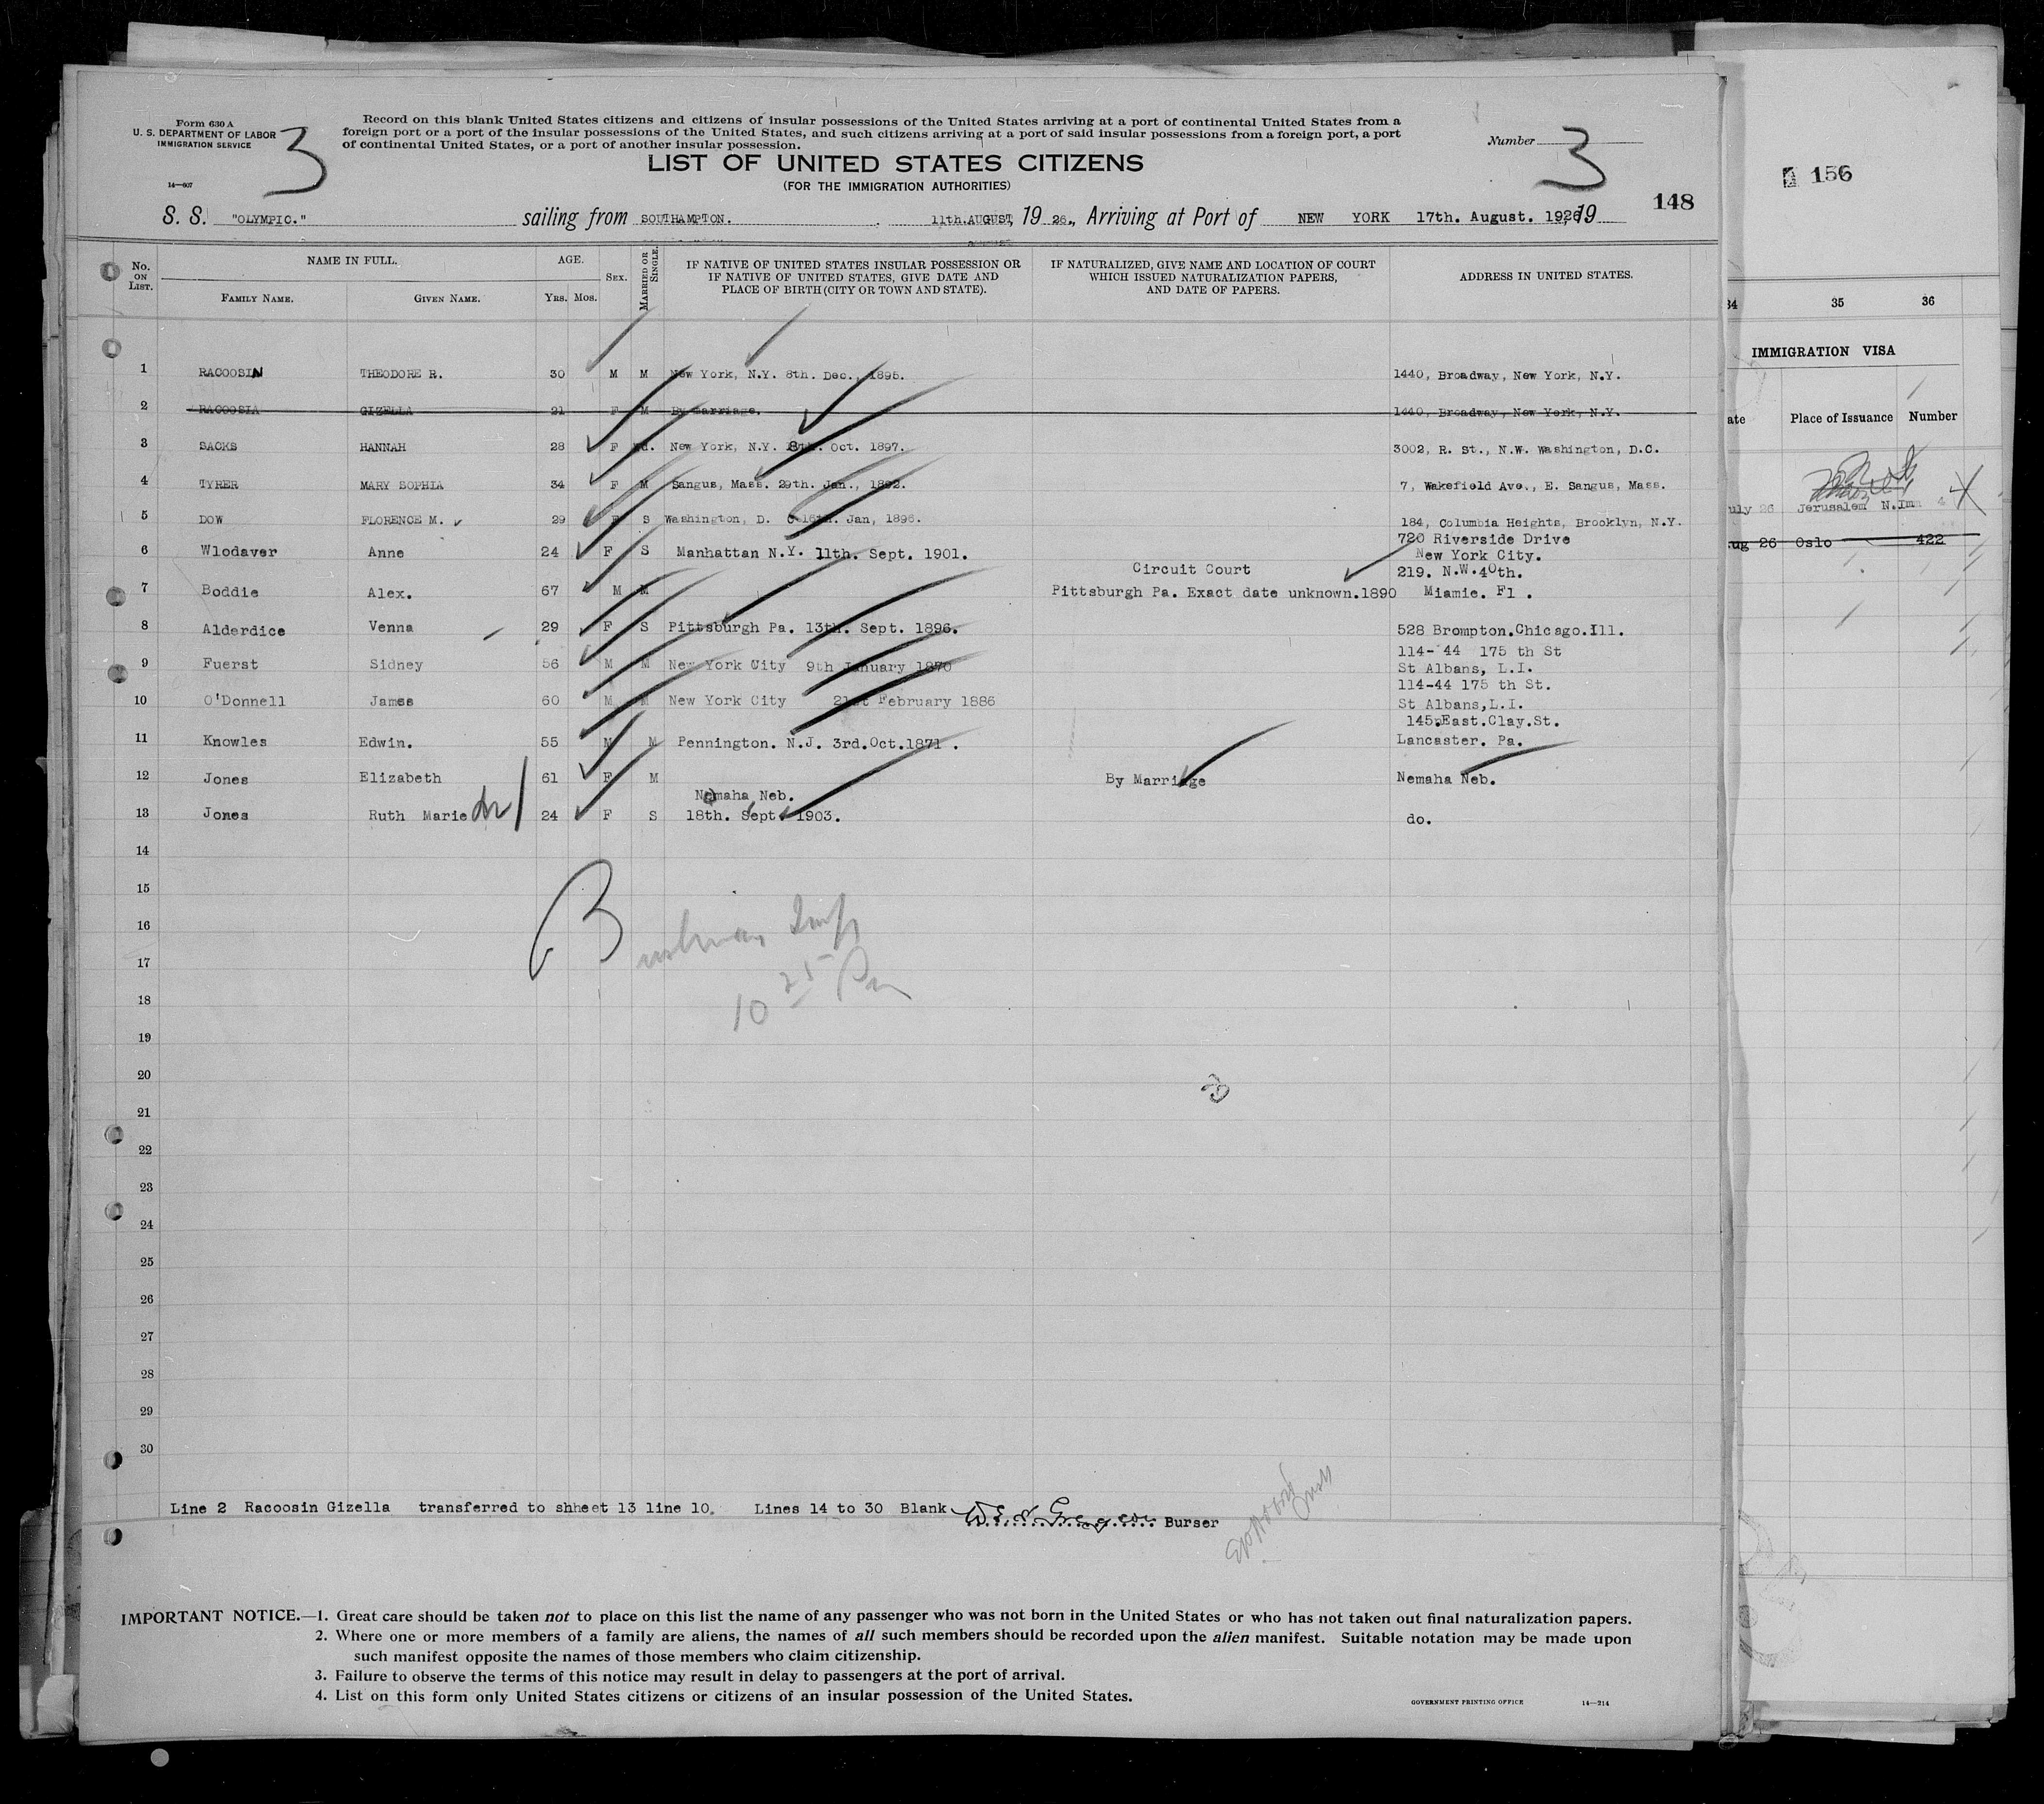 Form 630 A
U. S. DEPARTMENT OF LABOR
IMMIGRATION SERVICE
14—607
3
Record on this blank United States citizens and citizens of insular possessions of the United States arriving at a port of continental United States from a
foreign port or a port of the insular possessions of the United States, and such citizens arriving at a port of said insular possessions from a foreign port, a port
of continental United States, or a port of another insular possession.
Number 3
LIST OF UNITED STATES CITIZENS
(FOR THE IMMIGRATION AUTHORITIES)
148
S. S. "OLYMPIC." sailing from SOUTHAMPTON. 11th.AUGUST, 19 26., Arriving at Port of NEW YORK 17th. August. 1926, 19
No. ON LIST.
NAME IN FULL.
FAMILY NAME. GIVEN NAME.
AGE.
YRS. MOS.
SEX.
MARRIED OR SINGLE.
IF NATIVE OF UNITED STATES INSULAR POSSESSION OR
IF NATIVE OF UNITED STATES, GIVE DATE AND
PLACE OF BIRTH (CITY OR TOWN AND STATE).
IF NATURALIZED, GIVE NAME AND LOCATION OF COURT
WHICH ISSUED NATURALIZATION PAPERS,
AND DATE OF PAPERS.
ADDRESS IN UNITED STATES.
1 RACOOSIN THEODORE R. 30 M M New York, N.Y. 8th. Dec., 1895. 1440, Broadway, New York, N.Y.
2 RACOOSIA GIZELLA 21 F M By marriage. 1440, Broadway, New York, N.Y.
3 SACKS HANNAH 28 F Wd. New York, N.Y. 8th. Oct. 1897. 3002, R. St., N.W. Washington, D.C.
4 TYRER MARY SOPHIA 34 F M Sangus, Mass. 29th. Jan., 1892. 7, Wakefield Ave., E. Sangus, Mass.
5 DOW FLORENCE M. 29 F S Washington, D. C. 16th. Jan, 1896. 184, Columbia Heights, Brooklyn, N.Y.
6 Wlodaver Anne 24 F S Manhattan N.Y. 11th. Sept. 1901. 720 Riverside Drive
New York City.
7 Boddie Alex. 67 M M Circuit Court
Pittsburgh Pa. Exact date unknown.1890 219. N.W.40th.
Miamie. Fl .
8 Alderdice Venna 29 F S Pittsburgh Pa. 13th. Sept. 1896. 528 Brompton.Chicago.Ill.
9 Fuerst Sidney 56 M M New York City 9th January 1870 114-44 175 th St
St Albans, L.I.
10 O'Donnell James 60 M M New York City 21st February 1886 114-44 175 th St.
St Albans,L.I.
11 Knowles Edwin. 55 M M Pennington. N.J. 3rd.Oct.1871 . 145.East.Clay.St.
Lancaster. Pa.
12 Jones Elizabeth 61 F M By Marriage Nemaha Neb.
13 Jones Ruth Marie 24 F S Nemaha Neb.
18th. Sept. 1903. do.
14
15
16
17
10 25 Pm
18
19
20
21
22
23
24
25
26
27
28
29
30
Line 2 Racoosin Gizella transferred to shheet 13 line 10. Lines 14 to 30 Blank
Burser
IMPORTANT NOTICE.—1. Great care should be taken not to place on this list the name of any passenger who was not born in the United States or who has not taken out final naturalization papers.
2. Where one or more members of a family are aliens, the names of all such members should be recorded upon the alien manifest. Suitable notation may be made upon
such manifest opposite the names of those members who claim citizenship.
3. Failure to observe the terms of this notice may result in delay to passengers at the port of arrival.
4. List on this form only United States citizens or citizens of an insular possession of the United States.
GOVERNMENT PRINTING OFFICE 14—214
156
34 35 36
IMMIGRATION VISA
ate Place of Issuance Number
uly 26 Jerusalem
ug 26 Oslo 422